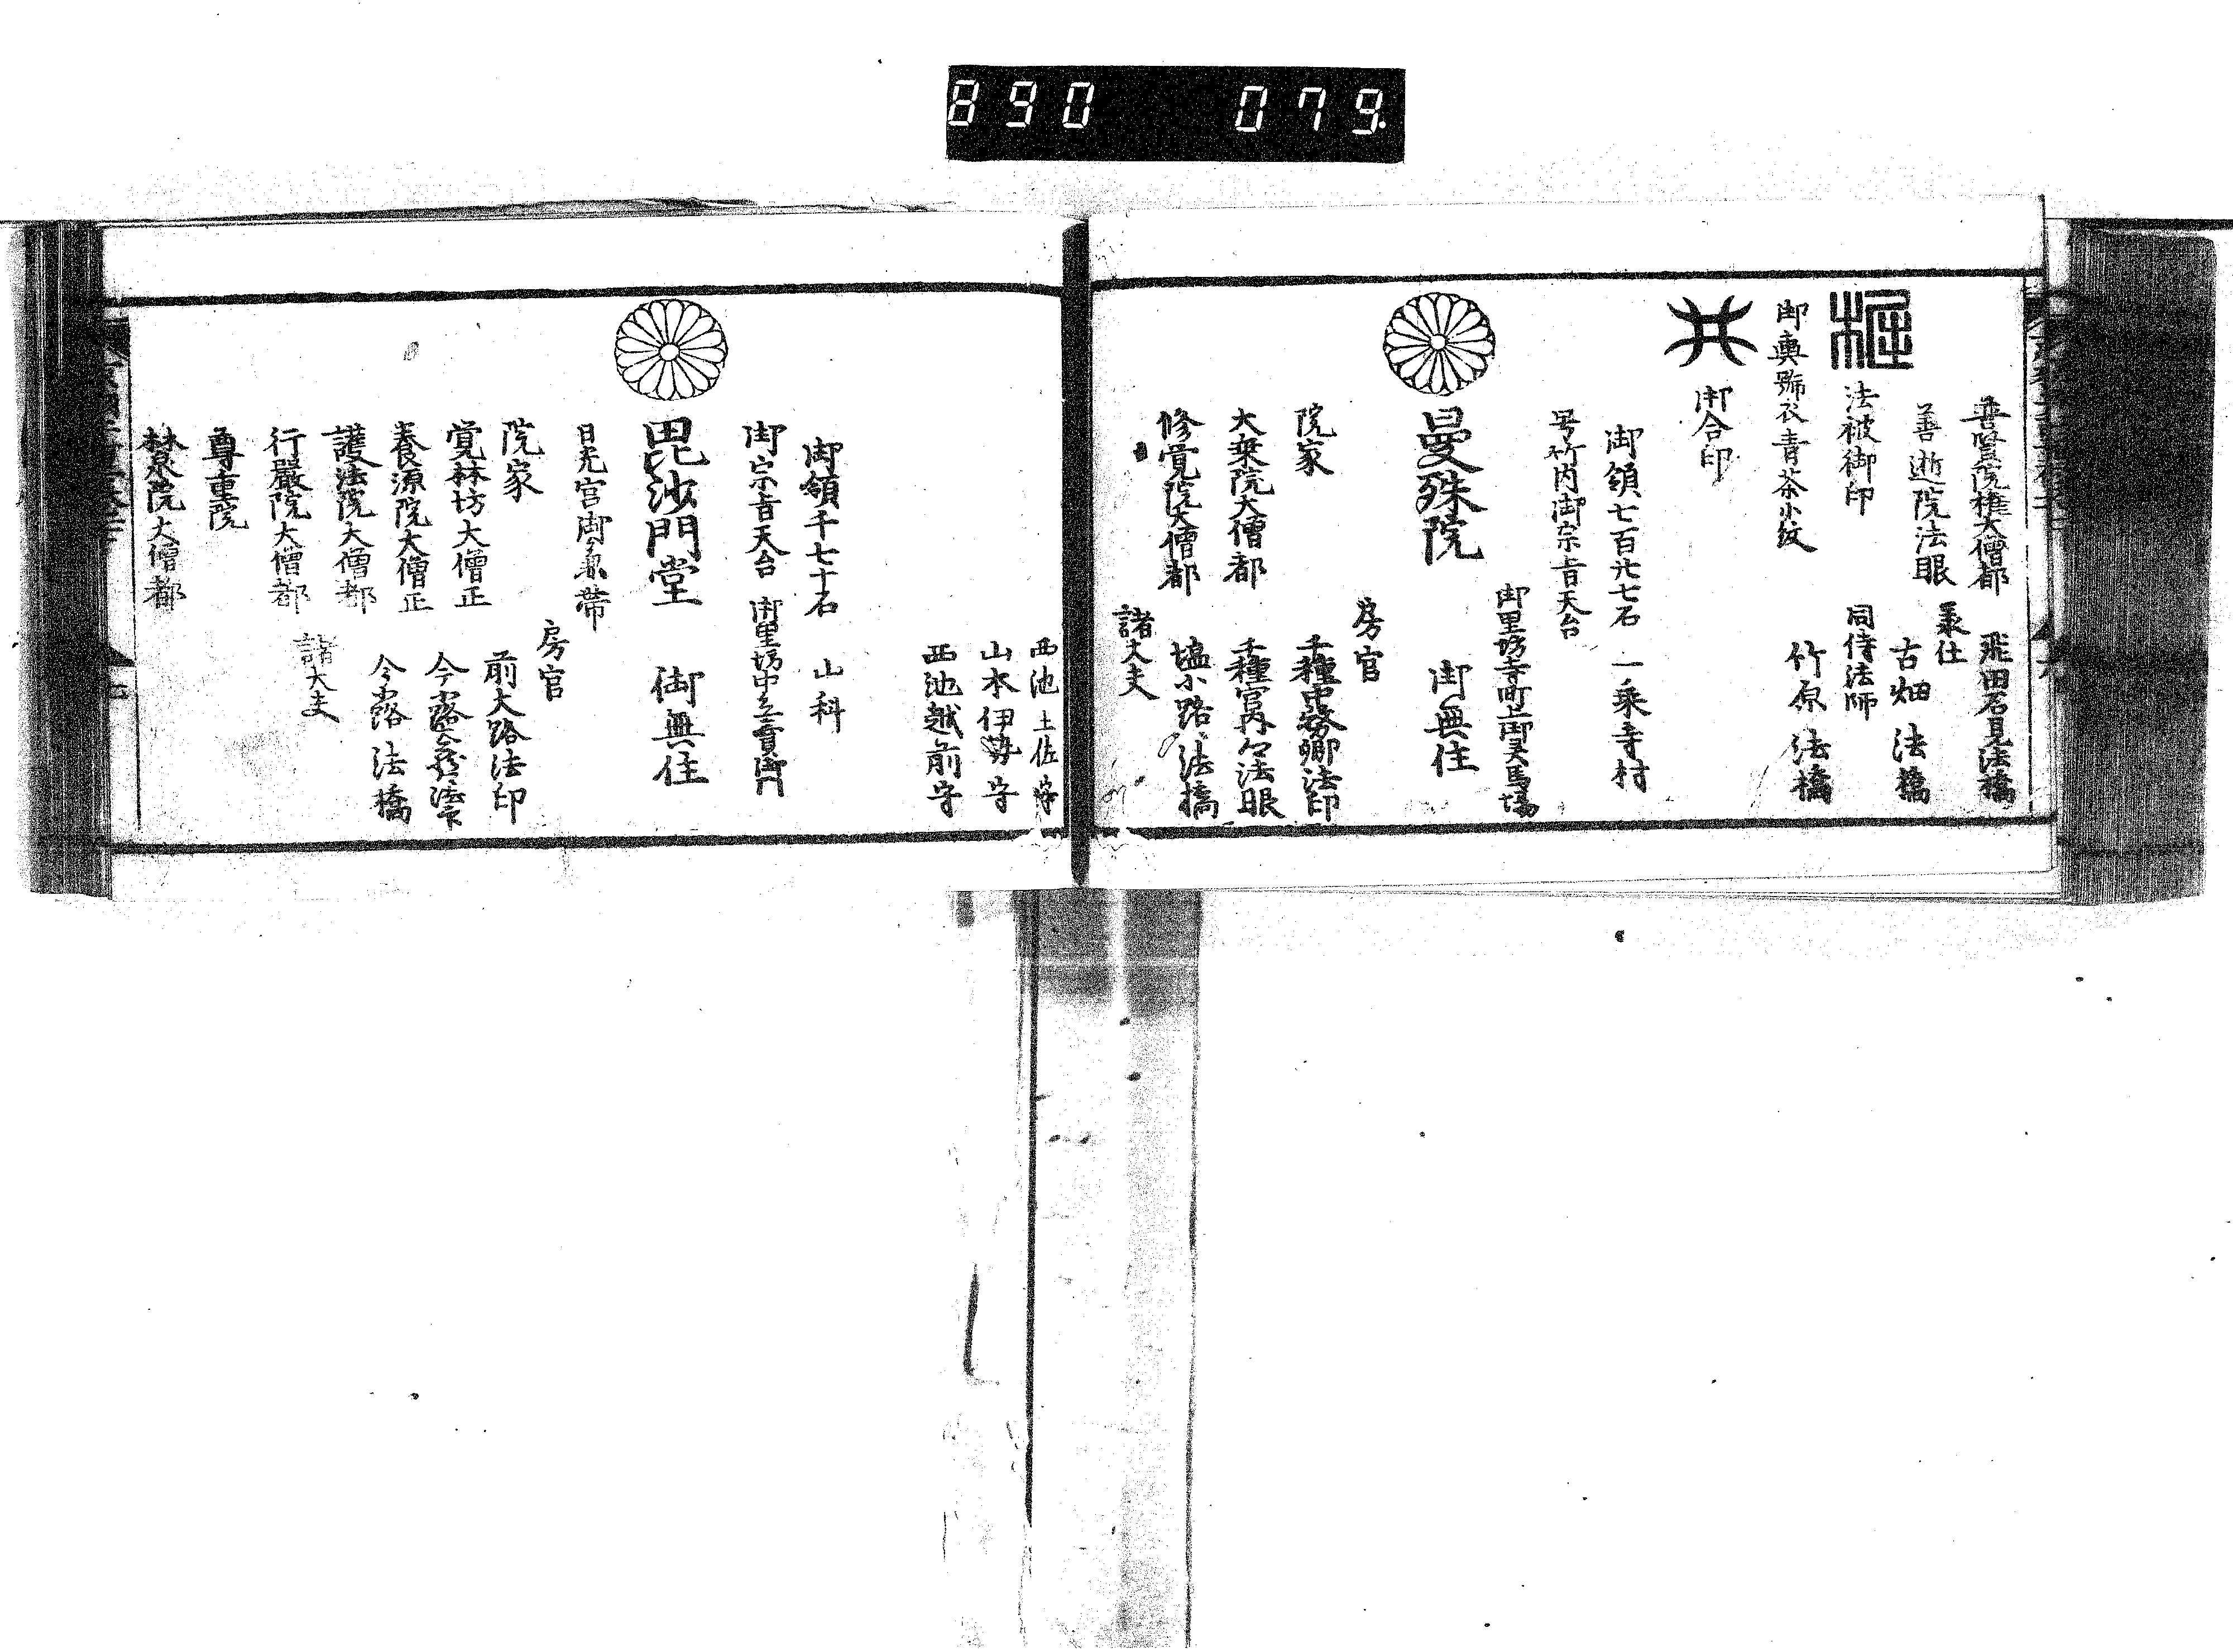 890 079
普賢院権大僧都
飛田石見法橋
善逝院法眼
承仕
古畑法橋
法被御印
同侍法師
竹原法橋
御輿舁衣青茶小紋
御合印
御領七百廾七石 一乗寺村
号竹内御宗旨天台
御里坊寺町上御灵馬場
曼殊院 御無住
院家
房官
千種中務卿法印
大乗院大僧都
千種宮内卿法眼
修覚院大僧都
塩小路 法橋
諸大夫
西池土佐守
山本伊勢守
西池越前守
御領千七十石 山科
御宗旨天台
毘沙門堂 御無住
日光宮御兼帯
院家
房官
前大路法印
覚林坊大僧正
養源院大僧正
今小路 法橋
護法院大僧都
諸大夫
行嚴院大僧都
尊重院
林泉院大僧都